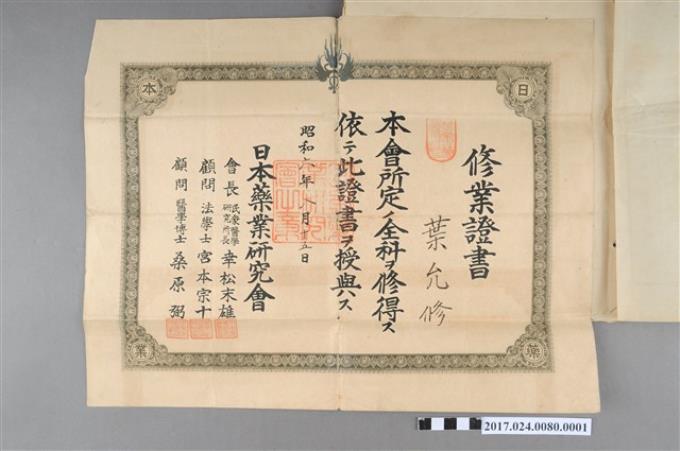 日本藥業
修業證書
葉允修
本會所定ノ全科ヲ修得ス
依テ此證書ヲ授與ス
昭和六年八月十五日
日本藥業研究會
會長 民衆醫學研究所長 幸松末雄
顧問 法學士 宮本宗十
顧問 醫學博士 桑原弼
2017.024.0080.0001